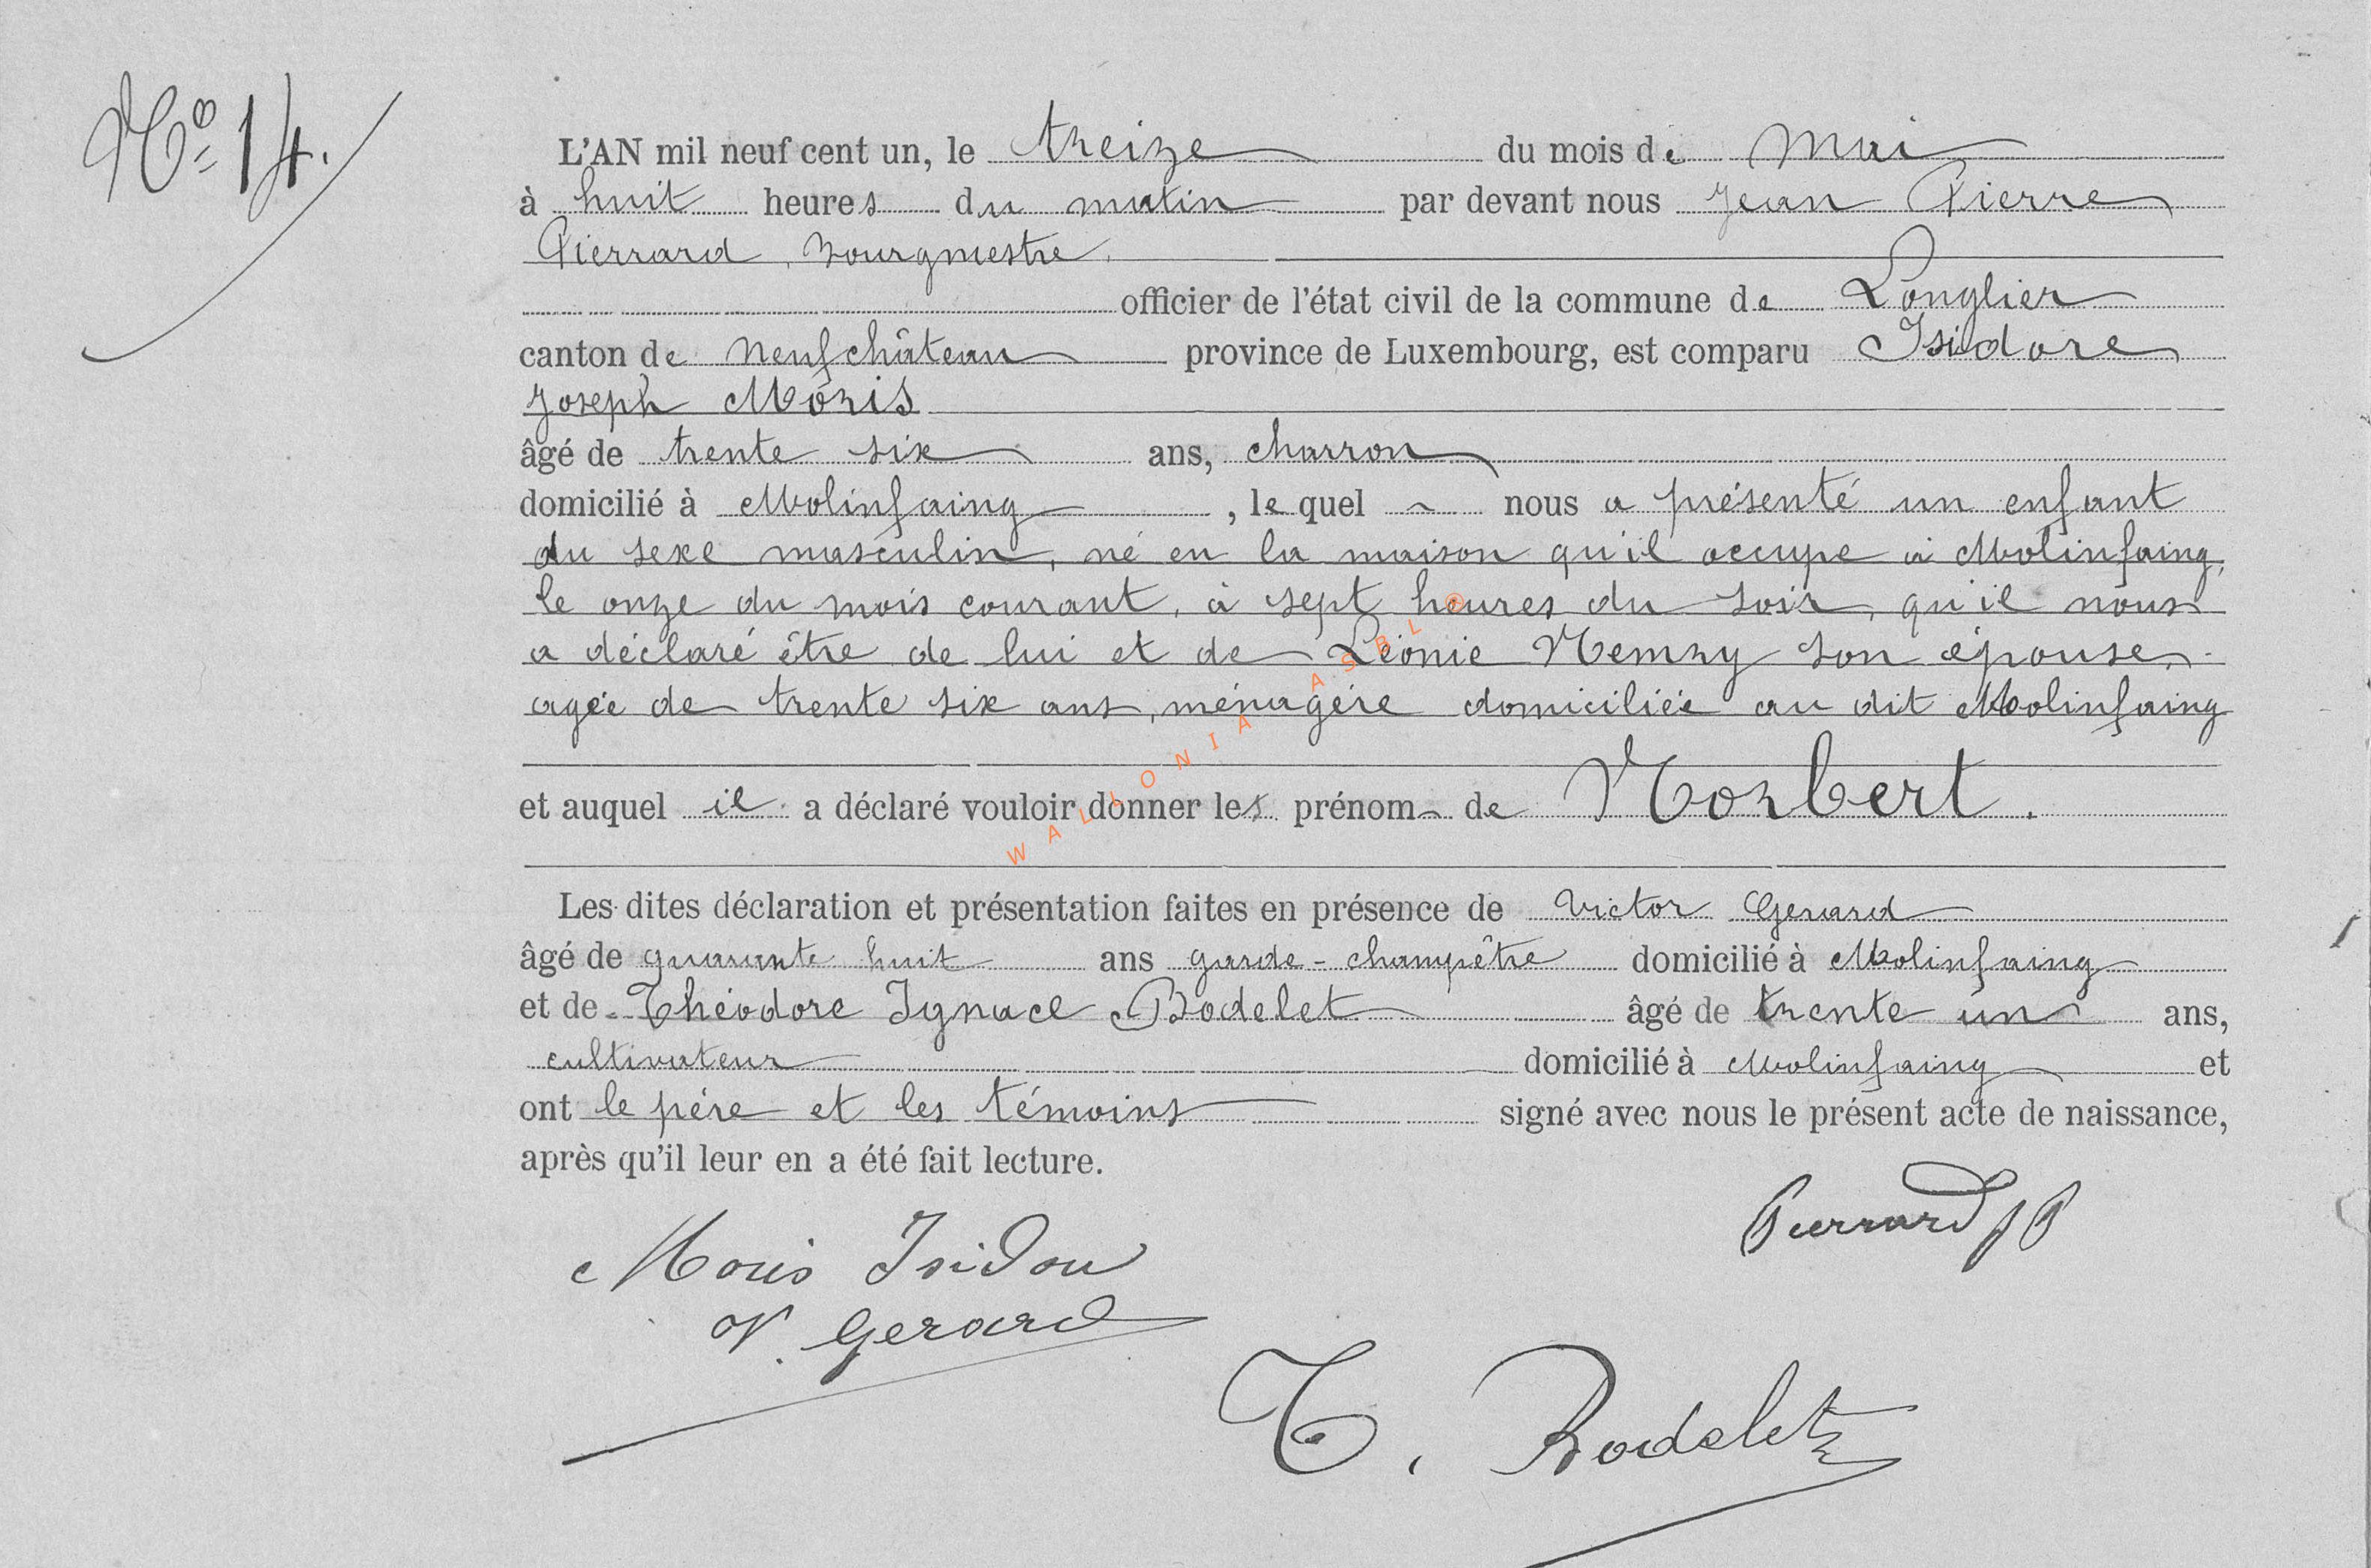 Nº 14.
L'AN mil neuf cent un, le treize du mois de Mai
à huit heures du matin par devant nous Jean Pierre
Pierrard, bourgmestre.
officier de l'état civil de la commune de Longlier
canton de Neufchâteau province de Luxembourg, est comparu Isidore
Joseph Moris
âgé de trente six ans, charron
domicilié à Molinfaing, le quel ~ nous a présenté un enfant
du sexe masculin, né en la maison qu'il occupe à Molinfaing,
le onze du mois courant, à sept heures du soir, qu'il nous
a déclaré être de lui et de Léonie Nemry son épouse,
agée de trente six ans, ménagère domiciliée au dit Molinfaing
et auquel il a déclaré vouloir donner les prénom de Norbert.
Les dites déclaration et présentation faites en présence de Victor Gerard
âgé de quarante huit ans garde-champêtre domicilié à Molinfaing
et de Théodore Ignace Bodelet âgé de trente un ans,
cultivateur domicilié à Molinfaing et
ont le père et les témoins signé avec nous le présent acte de naissance,
après qu'il leur en a été fait lecture.
Pierrard JP
Moris Isidore
V. Gerard
T. Bodelet
WALLONIA ASBL ©